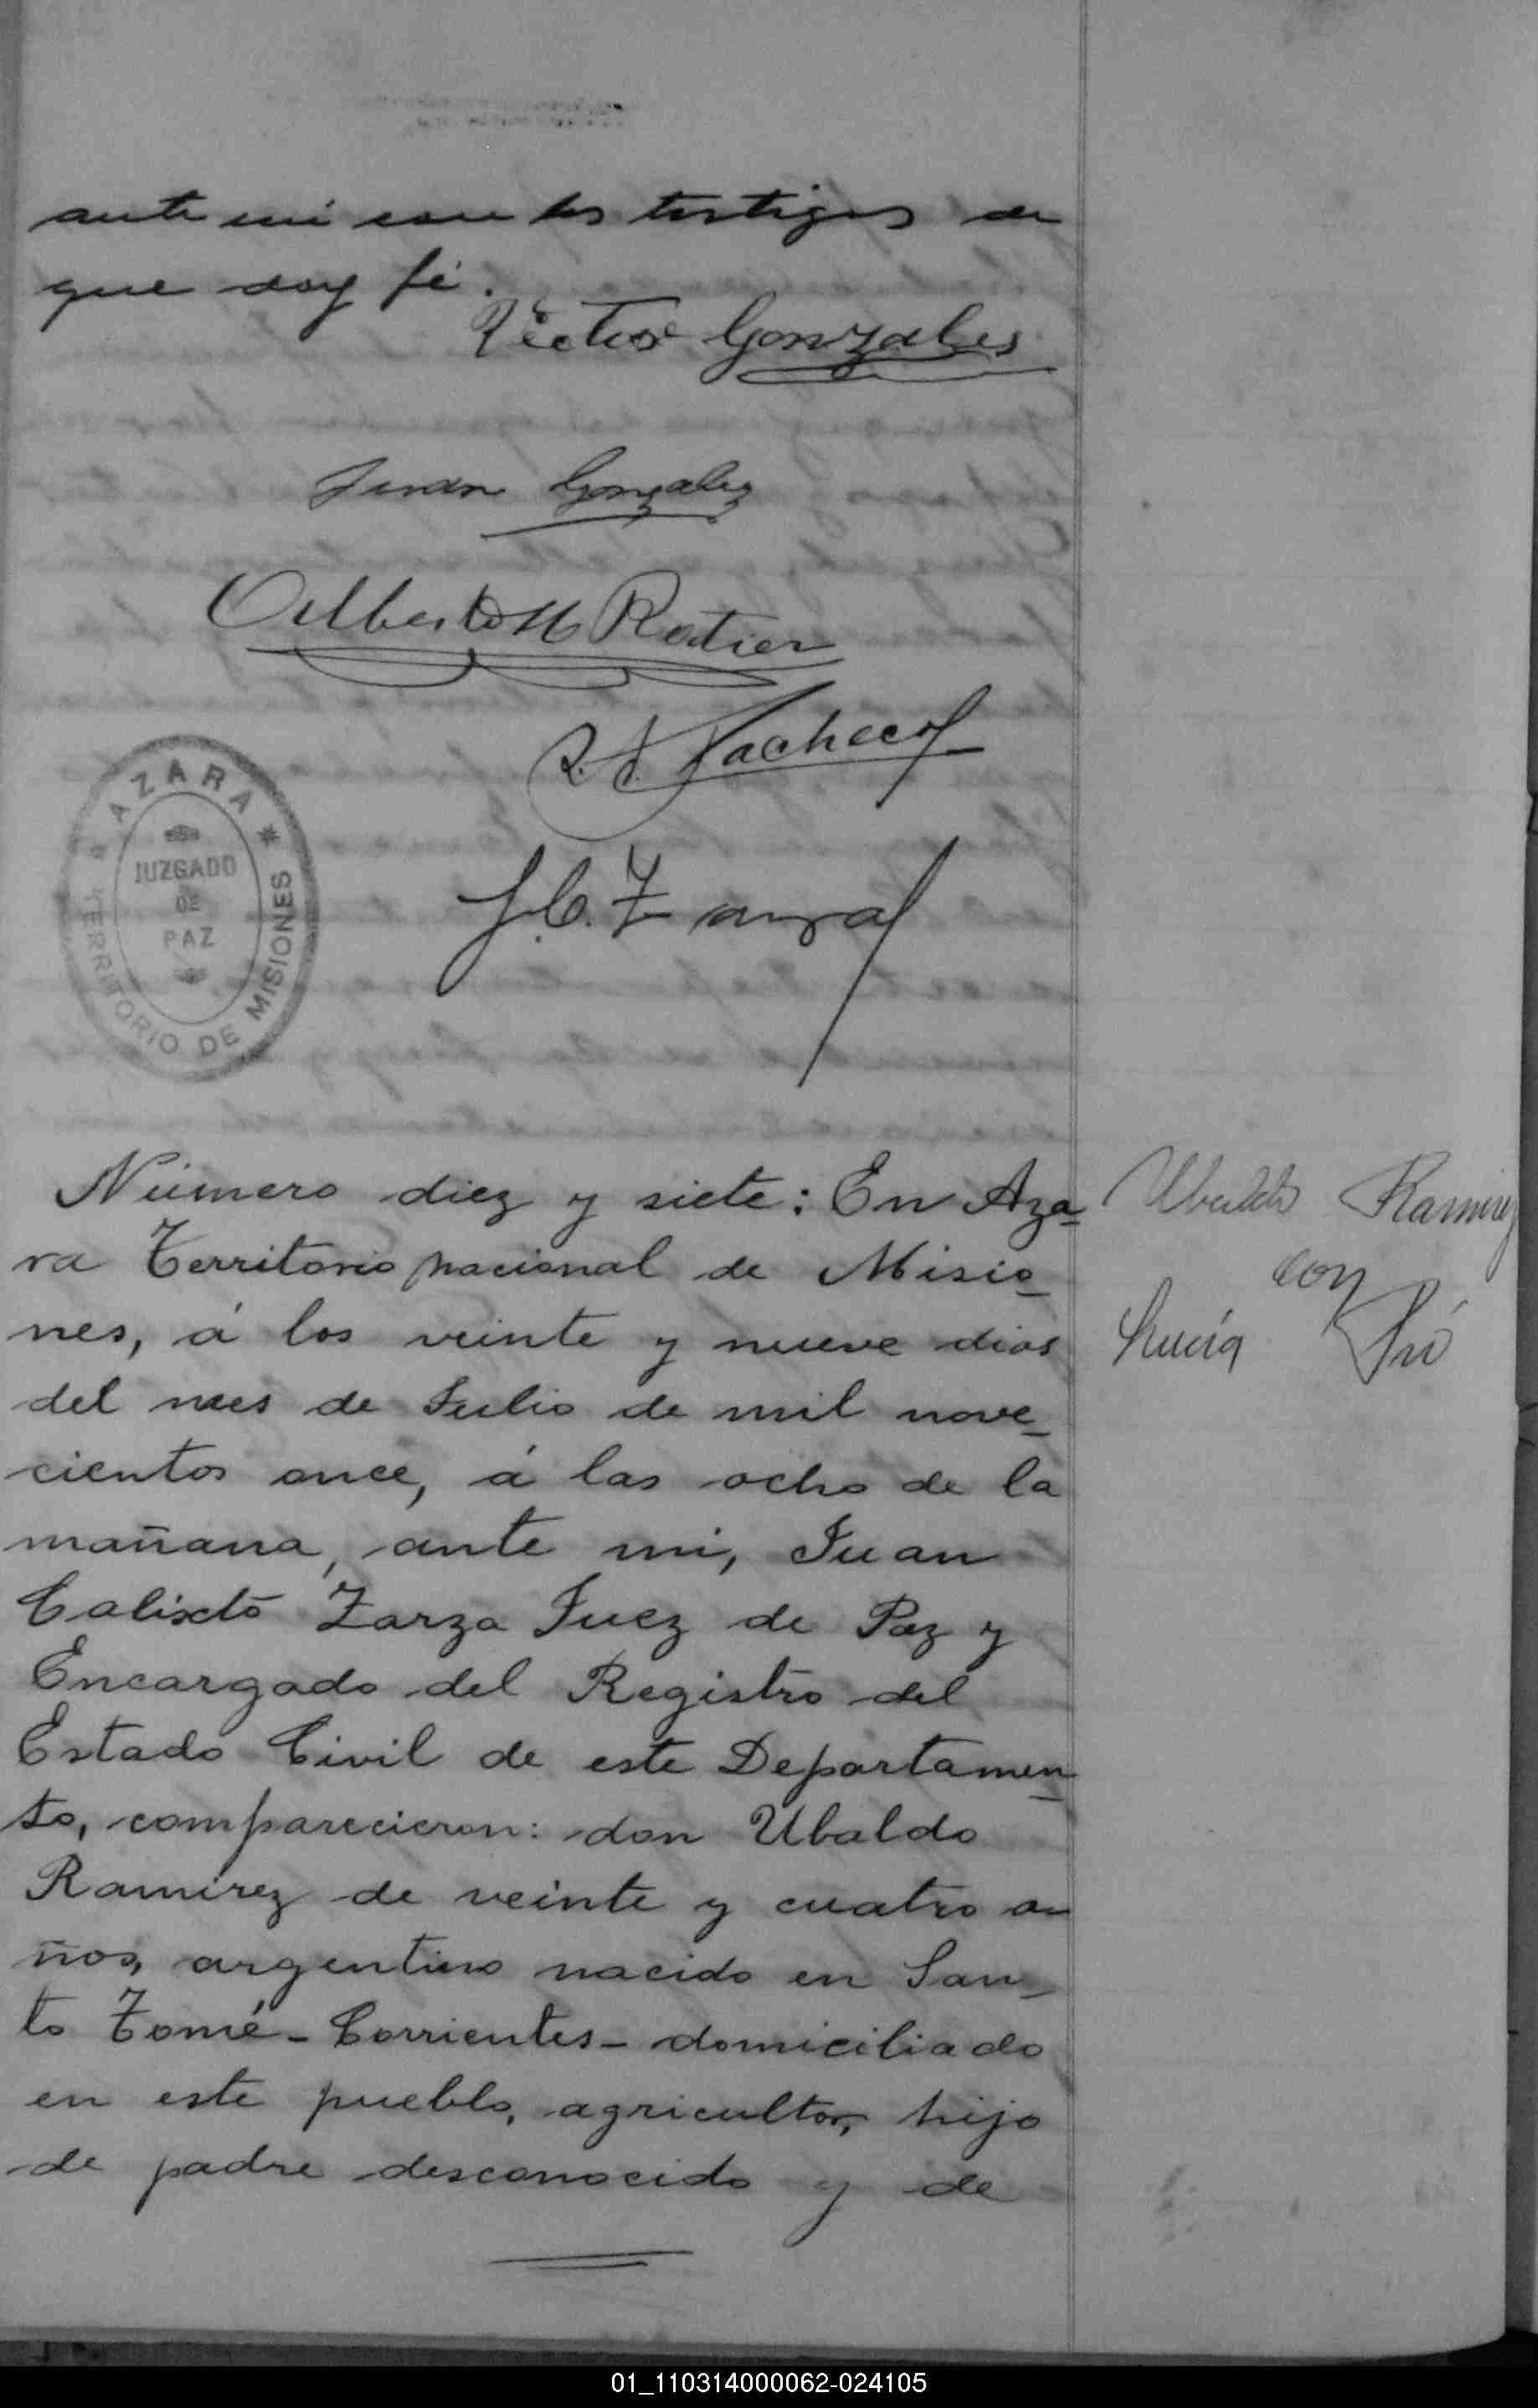 ante mi con los testigos de
que doy fé.
Victor Gonzales
Juan Gonzalez
Alberto M Rotier
Pacheco
J. C. Zarza
AZARA
JUZGADO
DE
PAZ
TERRITORIO DE MISIONES
Número diez y siete: En Aza-
ra Territorio nacional de Misio-
nes, á los veinte y nueve dias
del mes de Julio de mil nove-
cientos once, á las ocho de la
mañana, ante mi, Juan
Calixto Zarza Juez de Paz y
Encargado del Registro del
Estado Civil de este Departamen-
to, comparecieron: don Ubaldo
Ramírez de veinte y cuatro a-
ños, argentino nacido en San-
to Tomé - Corrientes - domiciliado
en este pueblo, agricultor, hijo
de padre desconocido y de
Ubaldo Ramirez
con
Lucía
01_110314000062-024105